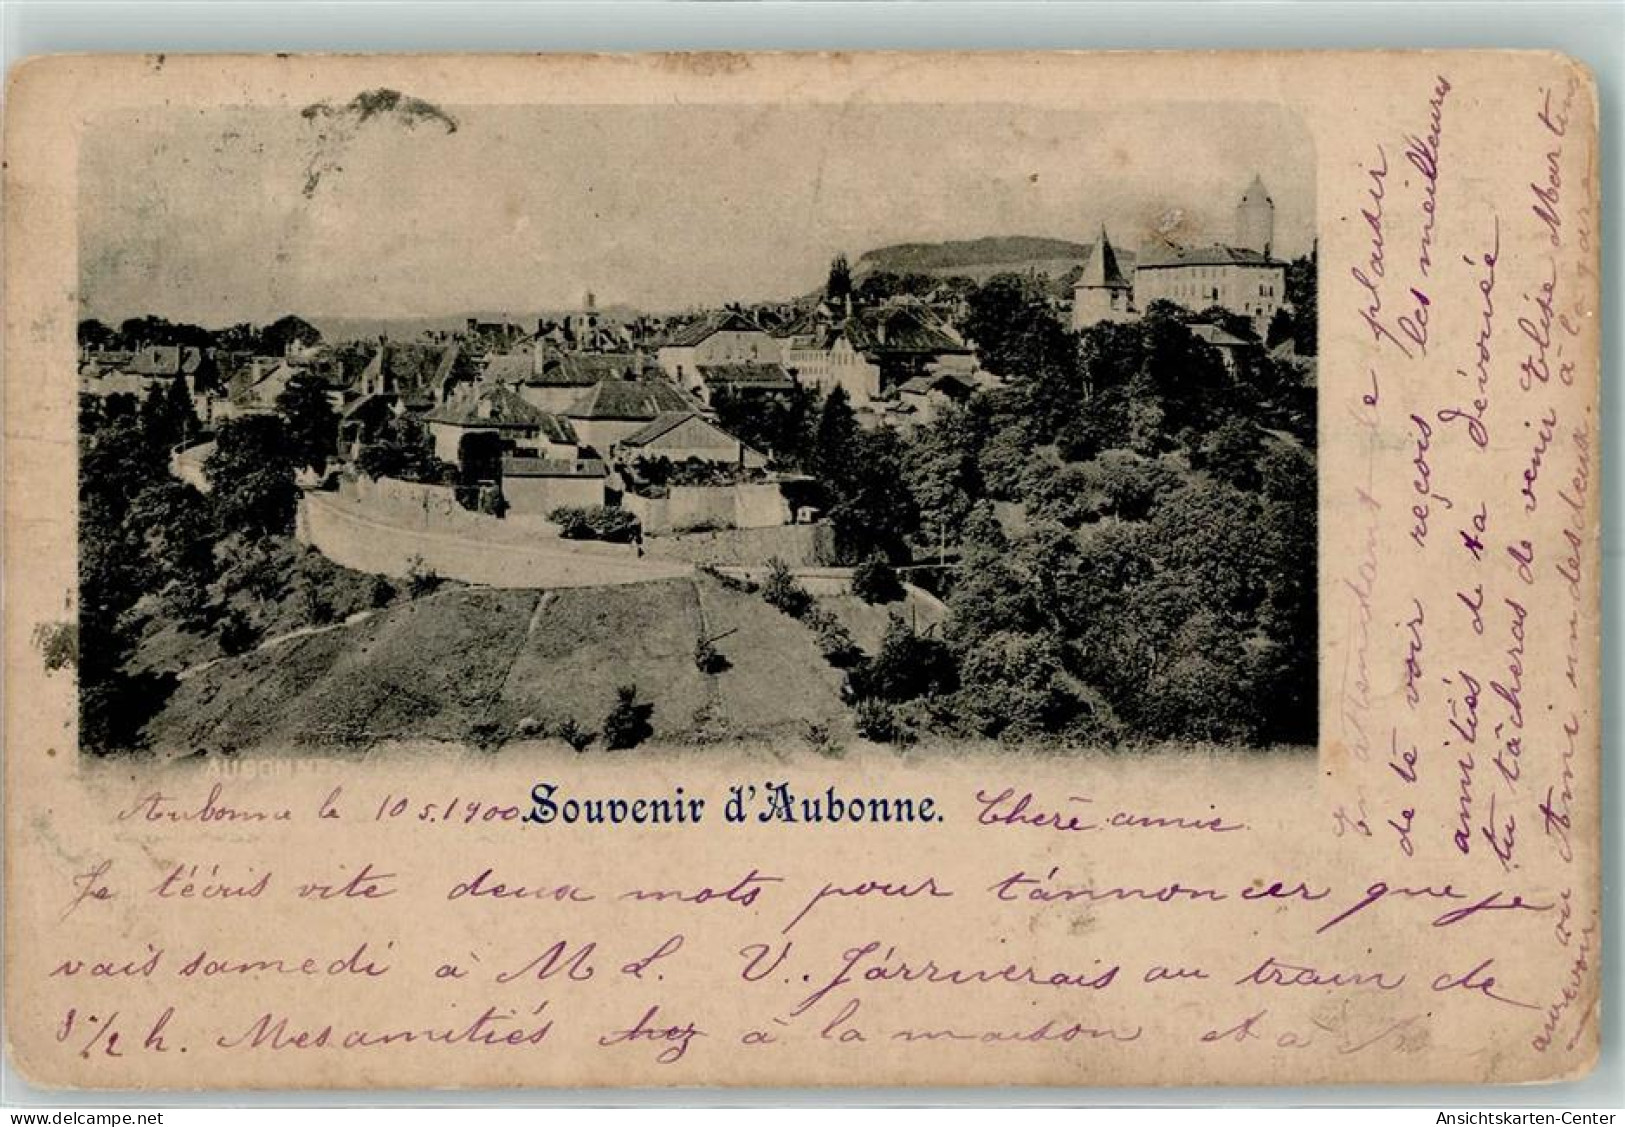 AUBONNE
Aubonne le 10.5.1900. Souvenir d'Aubonne. Chère amie
Je t'écris vite deux mots pour t'annoncer que je
vais samedi à M L. V.. J'arriverais au train de
h. Mes amitiés chez à la maison et à
En attendant le plaisir
de te voir reçois les meilleures
amitiés de ta Dévouée
tu tâcheras de venir Elise Martin
ou Anni un des deux. à la gare
aurevoir.
Ansichtskarten-Center